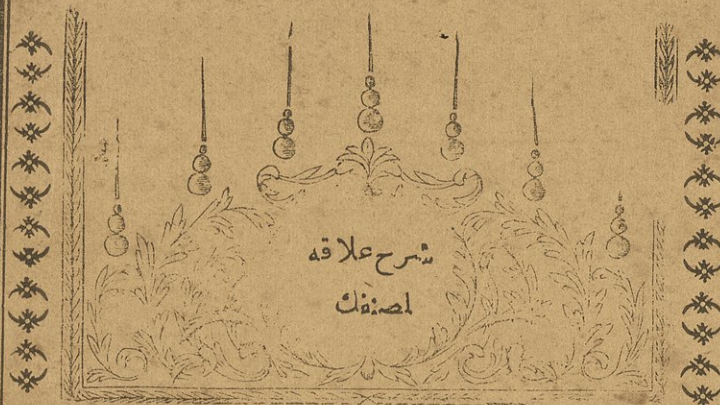 شرح علاقه
لمصنفك